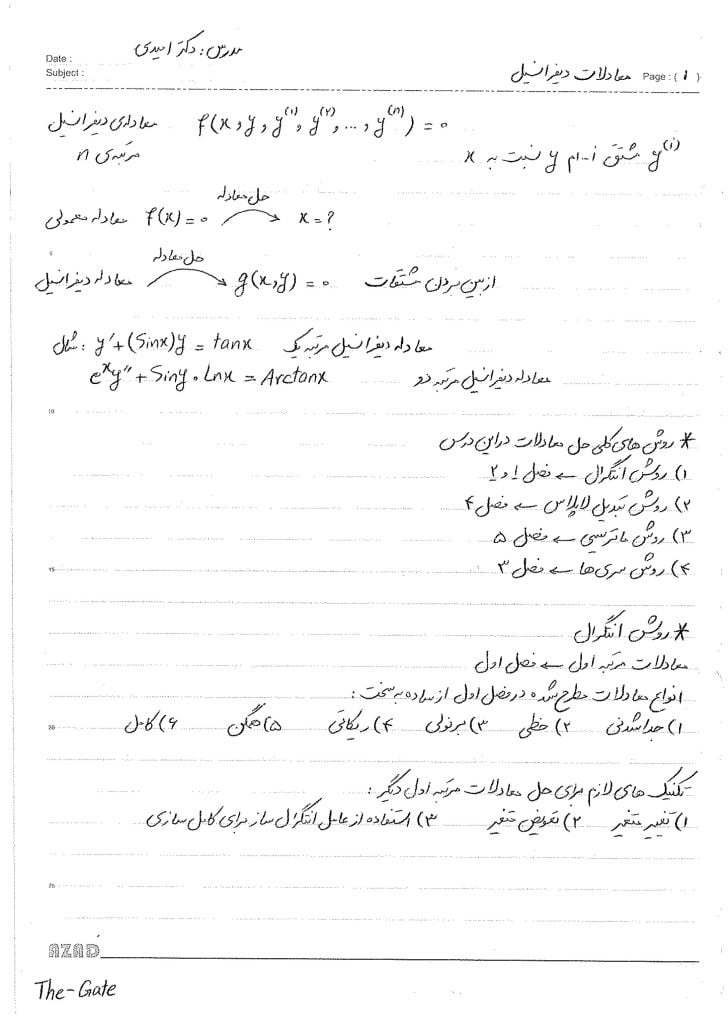 Date : مدرس : دکتر امیدی
Subject : معادلات دیفرانسیل Page : ( ۱ )
معادله‌ی دیفرانسیل f(x, y, y⁽¹⁾, y⁽²⁾, ..., y⁽ⁿ⁾) = ۰
مرتبه‌ی n y⁽ⁱ⁾ مشتق i-ام y نسبت به x
معادله معمولی f(x) = ۰ حل معادله → x = ?
معادله دیفرانسیل حل معادله → g(x,y) = ۰ از بین بردن مشتقات
5
مثال : y′ + (Sinx)y = tanx معادله دیفرانسیل مرتبه یک
eˣy″ + Siny . Lnx = Arctanx معادله دیفرانسیل مرتبه دو
10
* روش های کلی حل معادلات در این درس
۱) روش انتگرال ← فصل ۱ و ۲
۲) روش تبدیل لاپلاس ← فصل ۴
۳) روش ماتریسی ← فصل ۵
۴) روش سری ها ← فصل ۳
15
* روش انتگرال
معادلات مرتبه اول ← فصل اول
انواع معادلات مطرح شده در فصل اول از ساده به سخت :
۱) جداشدنی ۲) خطی ۳) برنولی ۴) ریکاتی ۵) همگن ۶) کامل
20
تکنیک های لازم برای حل معادلات مرتبه اول دیگر :
۱) تغییر متغیر ۲) تعویض متغیر ۳) استفاده از عامل انتگرال ساز برای کامل سازی
25
AZAD
The-Gate